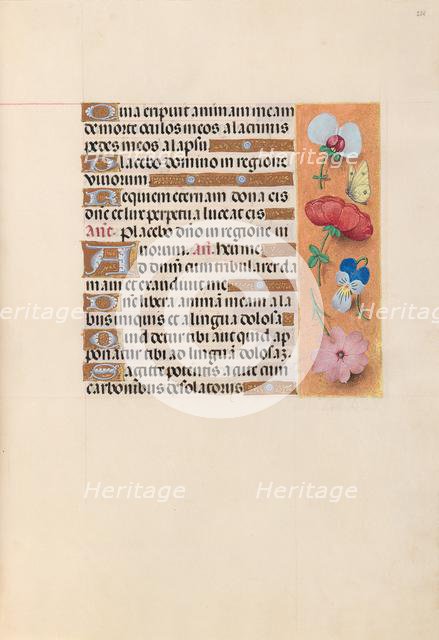 Quia eripuit animam meam
de morte oculos meos a lacrimis
pedes meos a lapsu
Placebo domino in regione
vivorum
Requiem eternam dona eis
dñe et lux perpetua luceat eis
Añt. Placebo dño in regione in
vorum. Añ. heu me
Ad dominũ cum tribularer cla
mavi et exaudivit me
Domine libera animã meam a la
bijs iniquis et a lingua dolosa
Quid detur tibi aut quid ap
ponatur tibi ad linguã dolosaʒ
Sagitte potentis acute cum
carbonibus desolatorijs
Heritage
Heritage
Heritage
Heritage
Heritage
Heritage